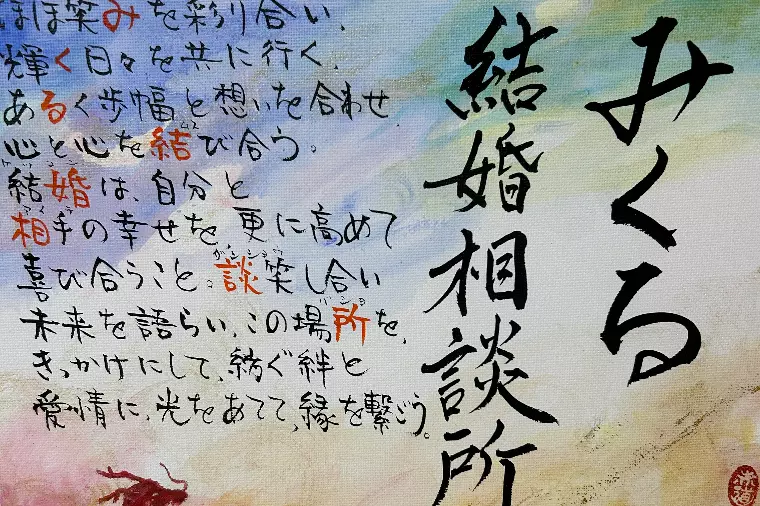 みくる
結婚相談所
ほほ笑みを彩り合い、
輝く日々を共に行く、
あるく歩幅と想いを合わせ、
心と心を結び合う。
結婚は、自分と
相手の幸せを、更に高めて
喜び合うこと。談笑し合い
未来を語らい、この場所を、
きっかけにして、紡ぐ絆と
愛情に、光をあてて、縁を繋ごう。